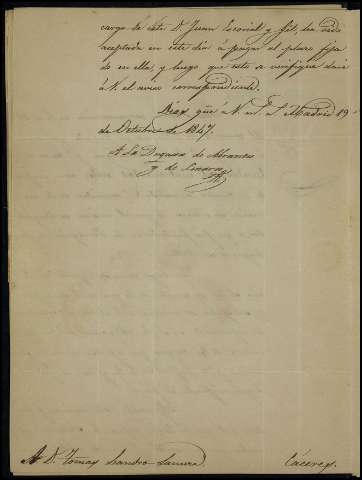 cargo de este D. Juan Escorial y Gil, ha sido
aceptada en este dia á pagar el plazo fija
do en ella, y luego que esto se verifique daré
á V. el aviso correspondiente.
Dios gũe á V. m. a. Madrid 19
de Octubre de 1847.
La Duquesa de Abrantes
y de Linares
A D. Tomas
Cáceres.